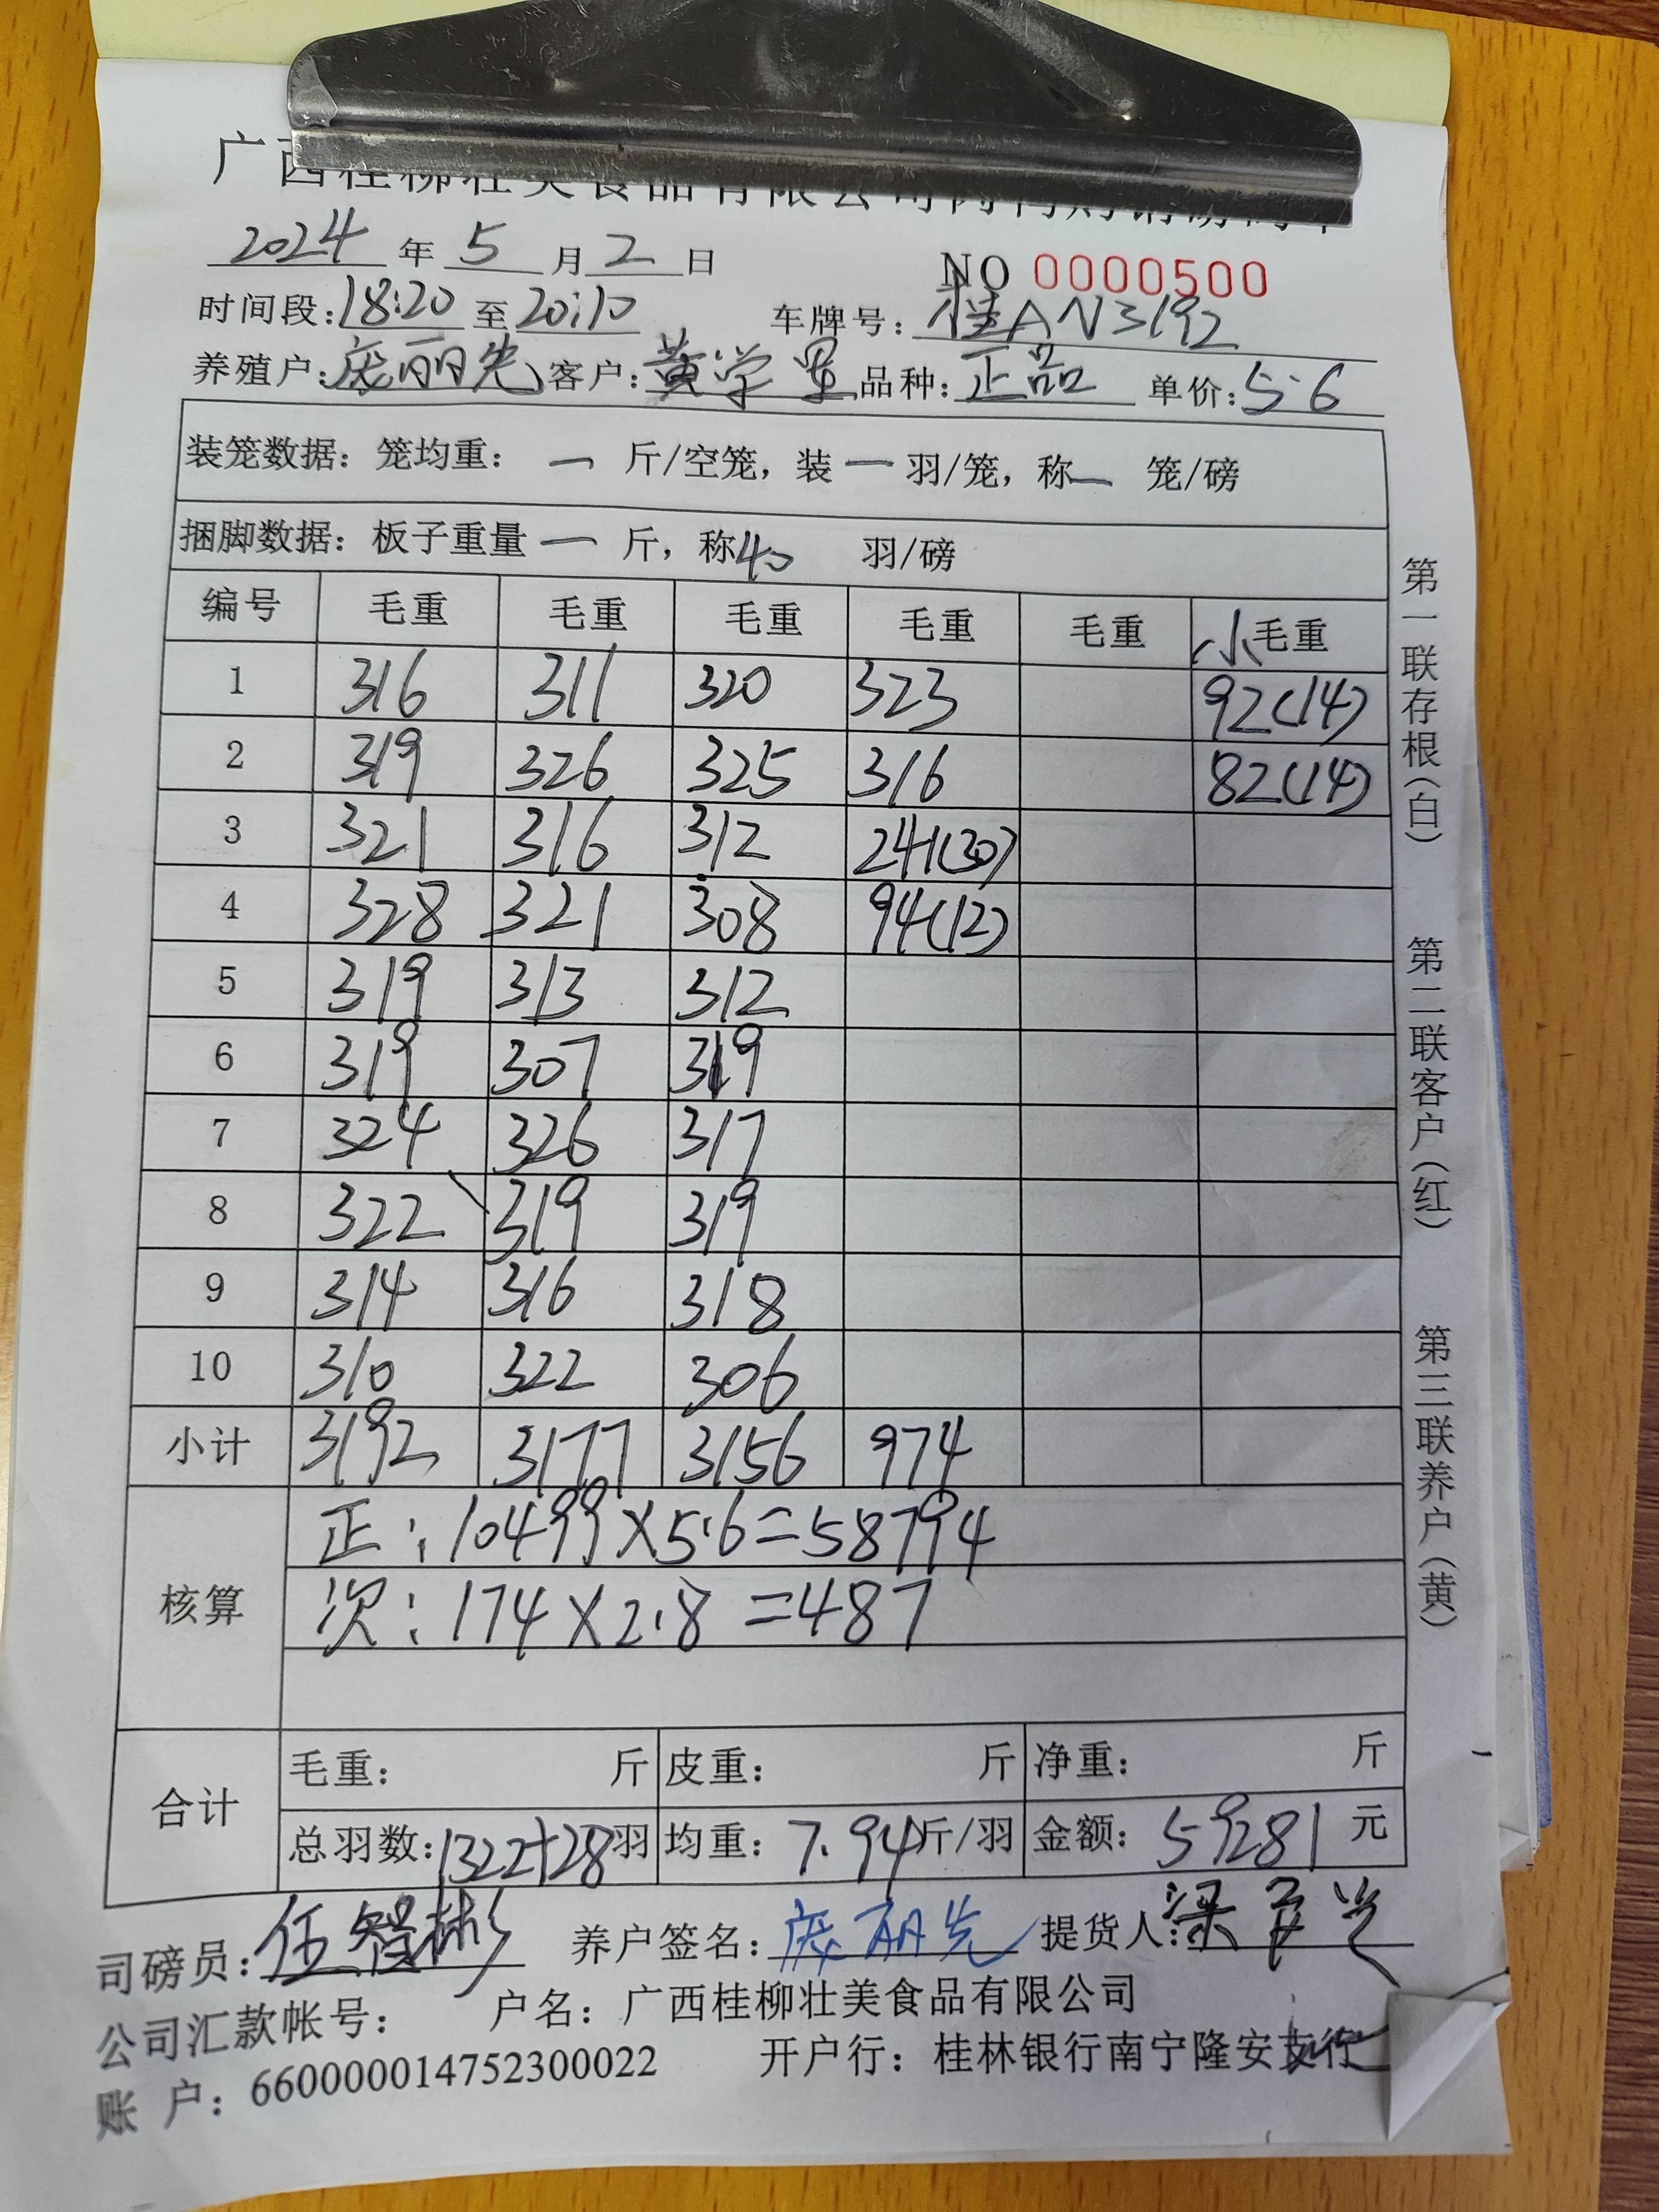 广西桂柳壮美食品有限公司
2024 年 5 月 2 日
NO 0000500
时间段:18:20 至 20:10 车牌号:桂AN3192
养殖户:庞丽先 客户:黄学星 品种:正品 单价:5.6
装笼数据: 笼均重: 一 斤/空笼, 装 一 羽/笼, 称 一 笼/磅
捆脚数据: 板子重量 一 斤, 称 40 羽/磅
编号 毛重 毛重 毛重 毛重 毛重 小毛重
1 316 311 320 323 92(14)
2 319 326 325 316 82(14)
3 321 316 312 241(30)
4 328 321 308 94(12)
5 319 313 312
6 319 307 319
7 324 326 317
8 322 319 319
9 314 316 318
10 310 322 306
小计 3192 3177 3156 974
核算 正:10499×5.6=58794
次:174×2.8=487
合计 毛重: 斤 皮重: 斤 净重: 斤
总羽数:1322+28羽 均重:7.94斤/羽 金额:59281 元
司磅员:任智彬 养户签名:庞丽先 提货人:梁
公司汇款帐号: 户名:广西桂柳壮美食品有限公司
账 户:660000014752300022 开户行:桂林银行南宁隆安支行
第一联存根(白)
第二联客户(红)
第三联养户(黄)